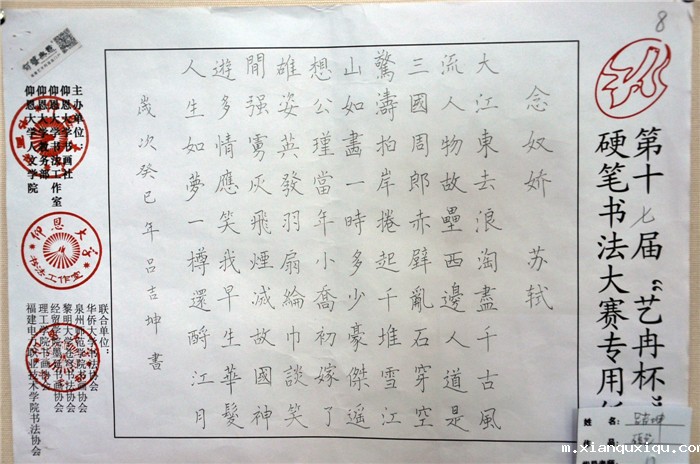 8
第十七届“艺冉杯”
硬笔书法大赛专用
念奴娇 苏轼
大江東去浪淘盡千古風
流人物故壘西邊人道是
三國周郎赤壁亂石穿空
驚濤拍岸捲起千堆雪江
山如畫一時多少豪傑遥
想公瑾當年小喬初嫁了
雄姿英發羽扇綸巾談笑
間强虜灰飛煙滅故國神
遊多情應笑我早生華髮
人生如夢一樽還酹江月
歲次癸巳年吕吉坤書
主办单位：
仰恩大学书画社
仰恩大学书法工作室
仰恩大学教务部
仰恩大学人文学院
联合单位：
华侨大学书法协会
泉州师范学院书法协会
黎明大学
经贸学院书画协会
理工学院书画协会
福建电力职业技术学院书法协会
仰恩大学
书法工作室
姓 名：吕吉坤
m.xianquxiqu.com